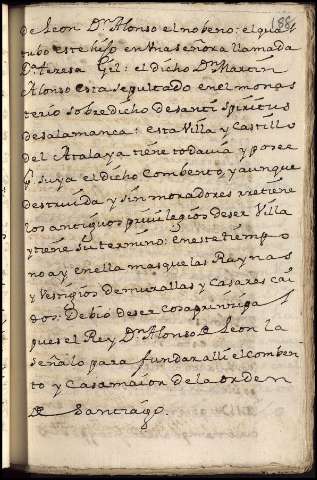 188
de Leon Dn Alonso el nobeno: el qual
tubo este hijo en vna señora llamada
Da teresa Gil: el dicho Dn Martin
Alonso esta sepultado en el monas
terio sobredicho de santi spiritus
de salamanca: esta Villa y Castillo
del Atalaya tiene todavia y posee
por suya el dicho Combento, y aunque
destruida y sin moradores rretiene
los antiguos priuilegios de ser Villa
y tiene su termino: en este tiempo
no ay en ella mas que las Raynas
y Vestigios de murallas y casares cai
dos: Debio de ser cosa principal
pues el Rey Dn Alonso de Leon la
señalo para fundar alli el comben
to y Casa maior de la orden
de Santiago.